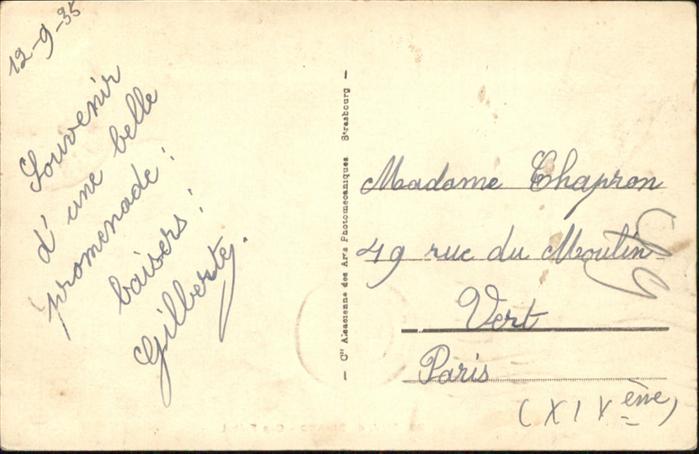 12-9-35
Souvenir
d'une belle
promenade!
baisers!
Gilberte.
— Cie Alsacienne des Arts Photomecaniques Strasbourg —
Madame Chapron
49 rue du Moulin
Vert
Paris
(XIVème)